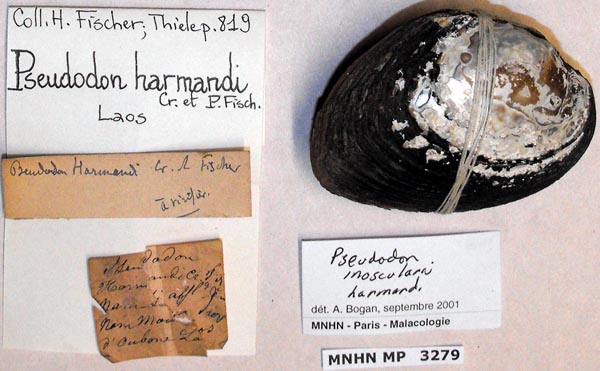 Coll. H. Fischer; Thiele p. 819
Pseudodon harmandi
Cr. et P. Fisch.
Laos
Pseudodon Harmandi Cr. & Fischer
Pseudodon
Harmandi Cr.
Nam
Nom
d'Oubone La os
Pseudodon
inoscularis
harmandi
dét. A. Bogan, septembre 2001
MNHN - Paris - Malacologie
MNHN MP 3279